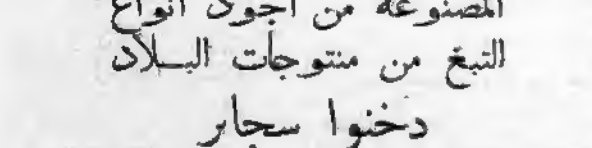 المصنوعة من اجود انواع
التبغ من منتوجات البلاد
دخنوا سجاير